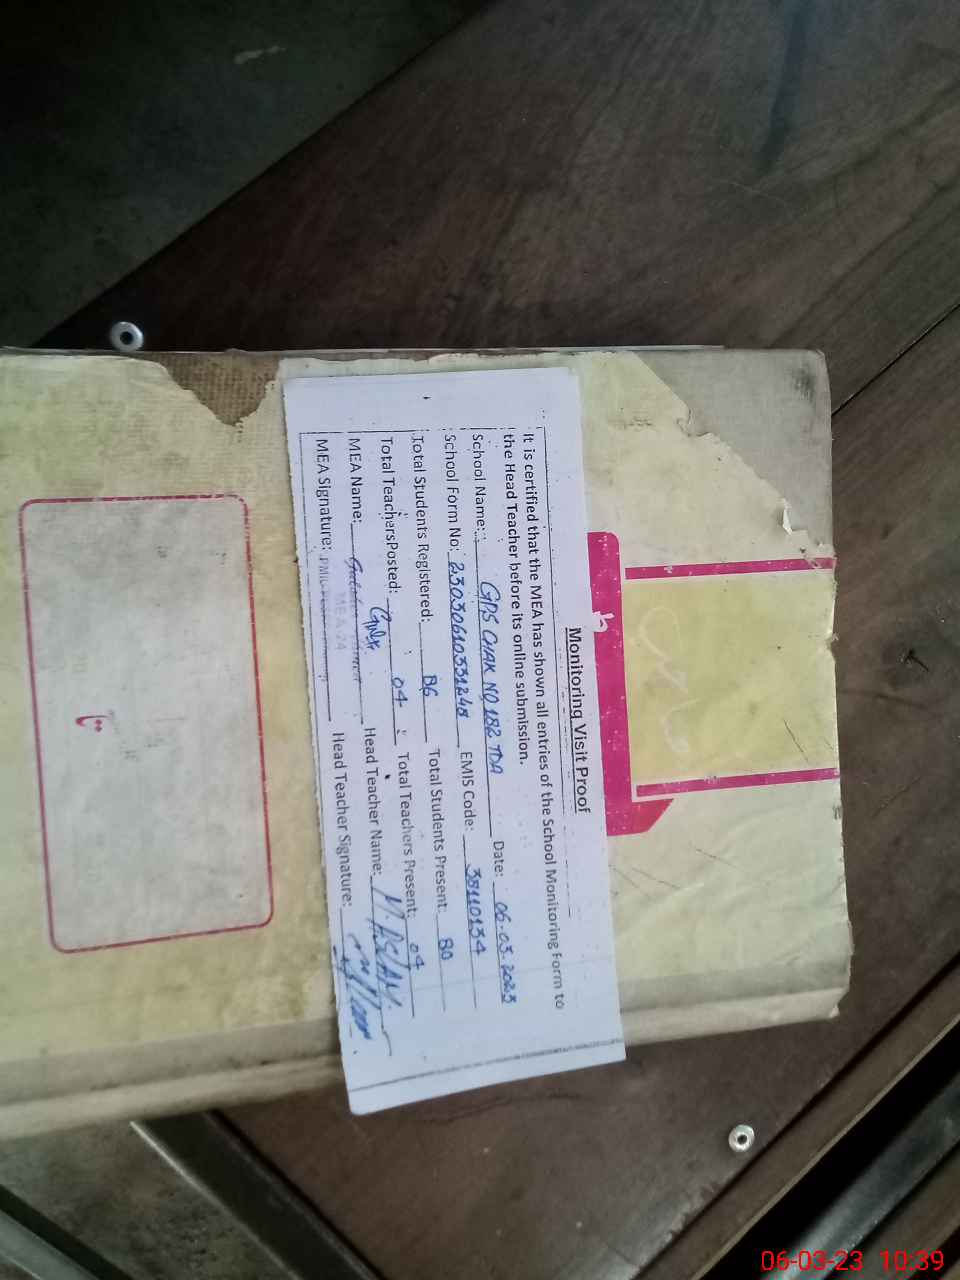 Monitoring Visit Proof
It is certified that the MEA has shown all entries of the School Monitoring Form to
the Head Teacher before its online submission.
School Name: GPS CHAK NO 182 TDA Date: 06.03.2023
School Form No: 23030610331248 EMIS Code: 38110134
Total Students Registered: 86 Total Students Present: 80
Total Teachers Posted: 04 Total Teachers Present: 04
MEA Name: Head Teacher Name: M. ASLAM
MEA-24
MEA Signature: Head Teacher Signature:
06-03-23 10:39